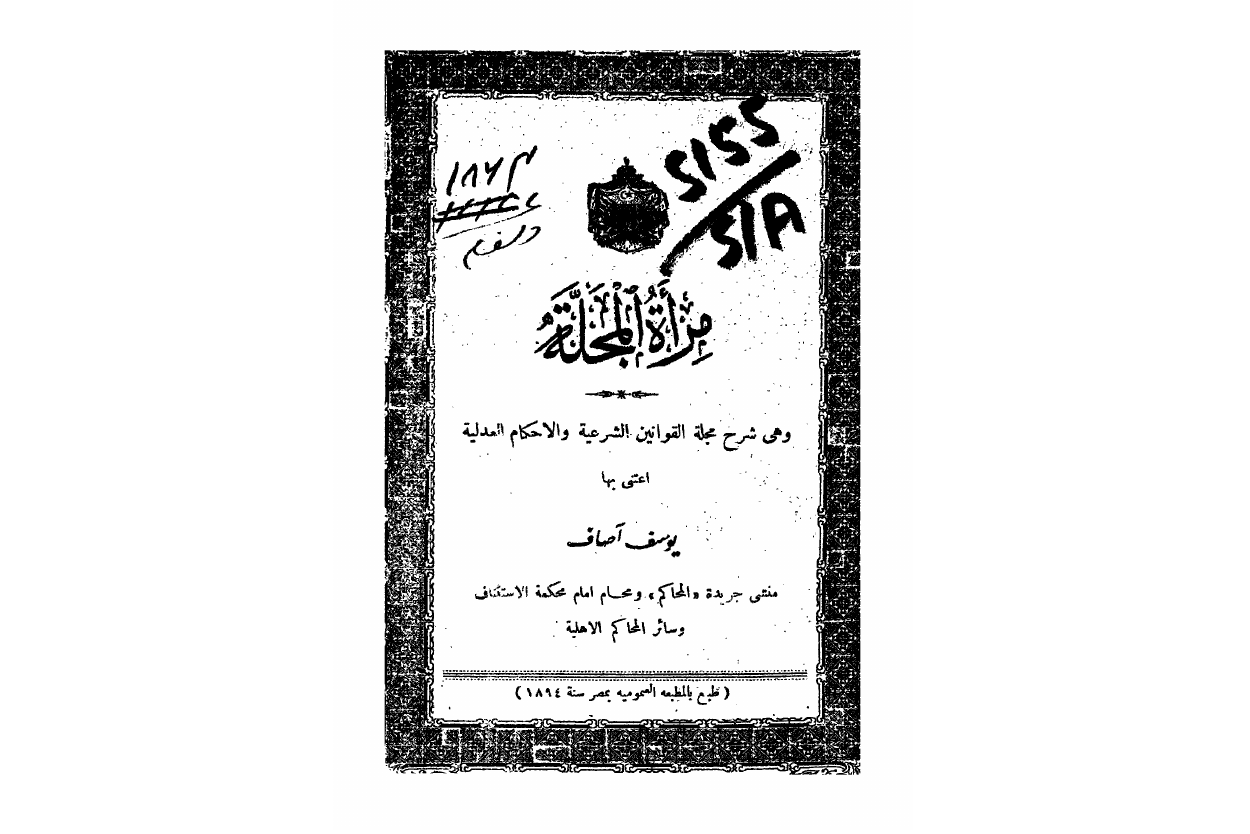 مِرْأَةُ ٱلْمَجَلَّة
وهى شرح مجلة القوانين الشرعية والاحكام العدلية
اعتنى بها
يوسف آصاف
منشى جريدة «المحاكم» ومحام امام محكمة الاستئناف
وسائر المحاكم الاهلية
( طبع بالمطبعه العموميه بمصر سنة ١٨٩٤ )